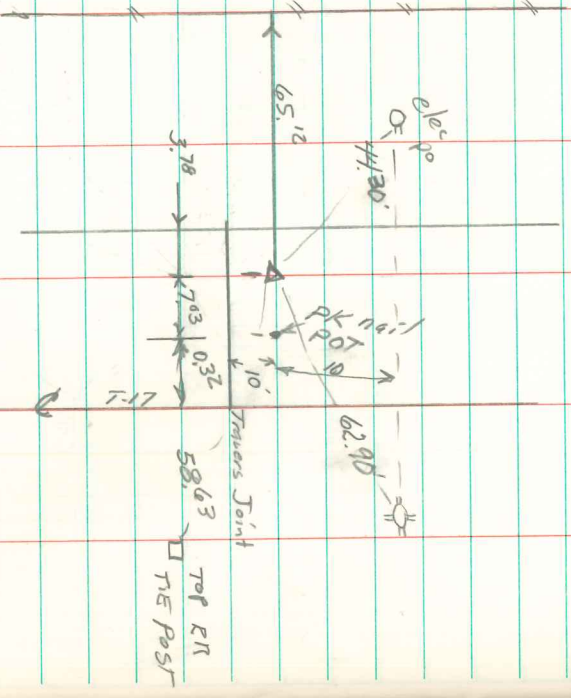 elec
po
44.30'
65.12
3.78
7.63
0.32
PK nail
POT
10
10'
62.90'
Travers Joint
58.63
TOP RR
TIE POST